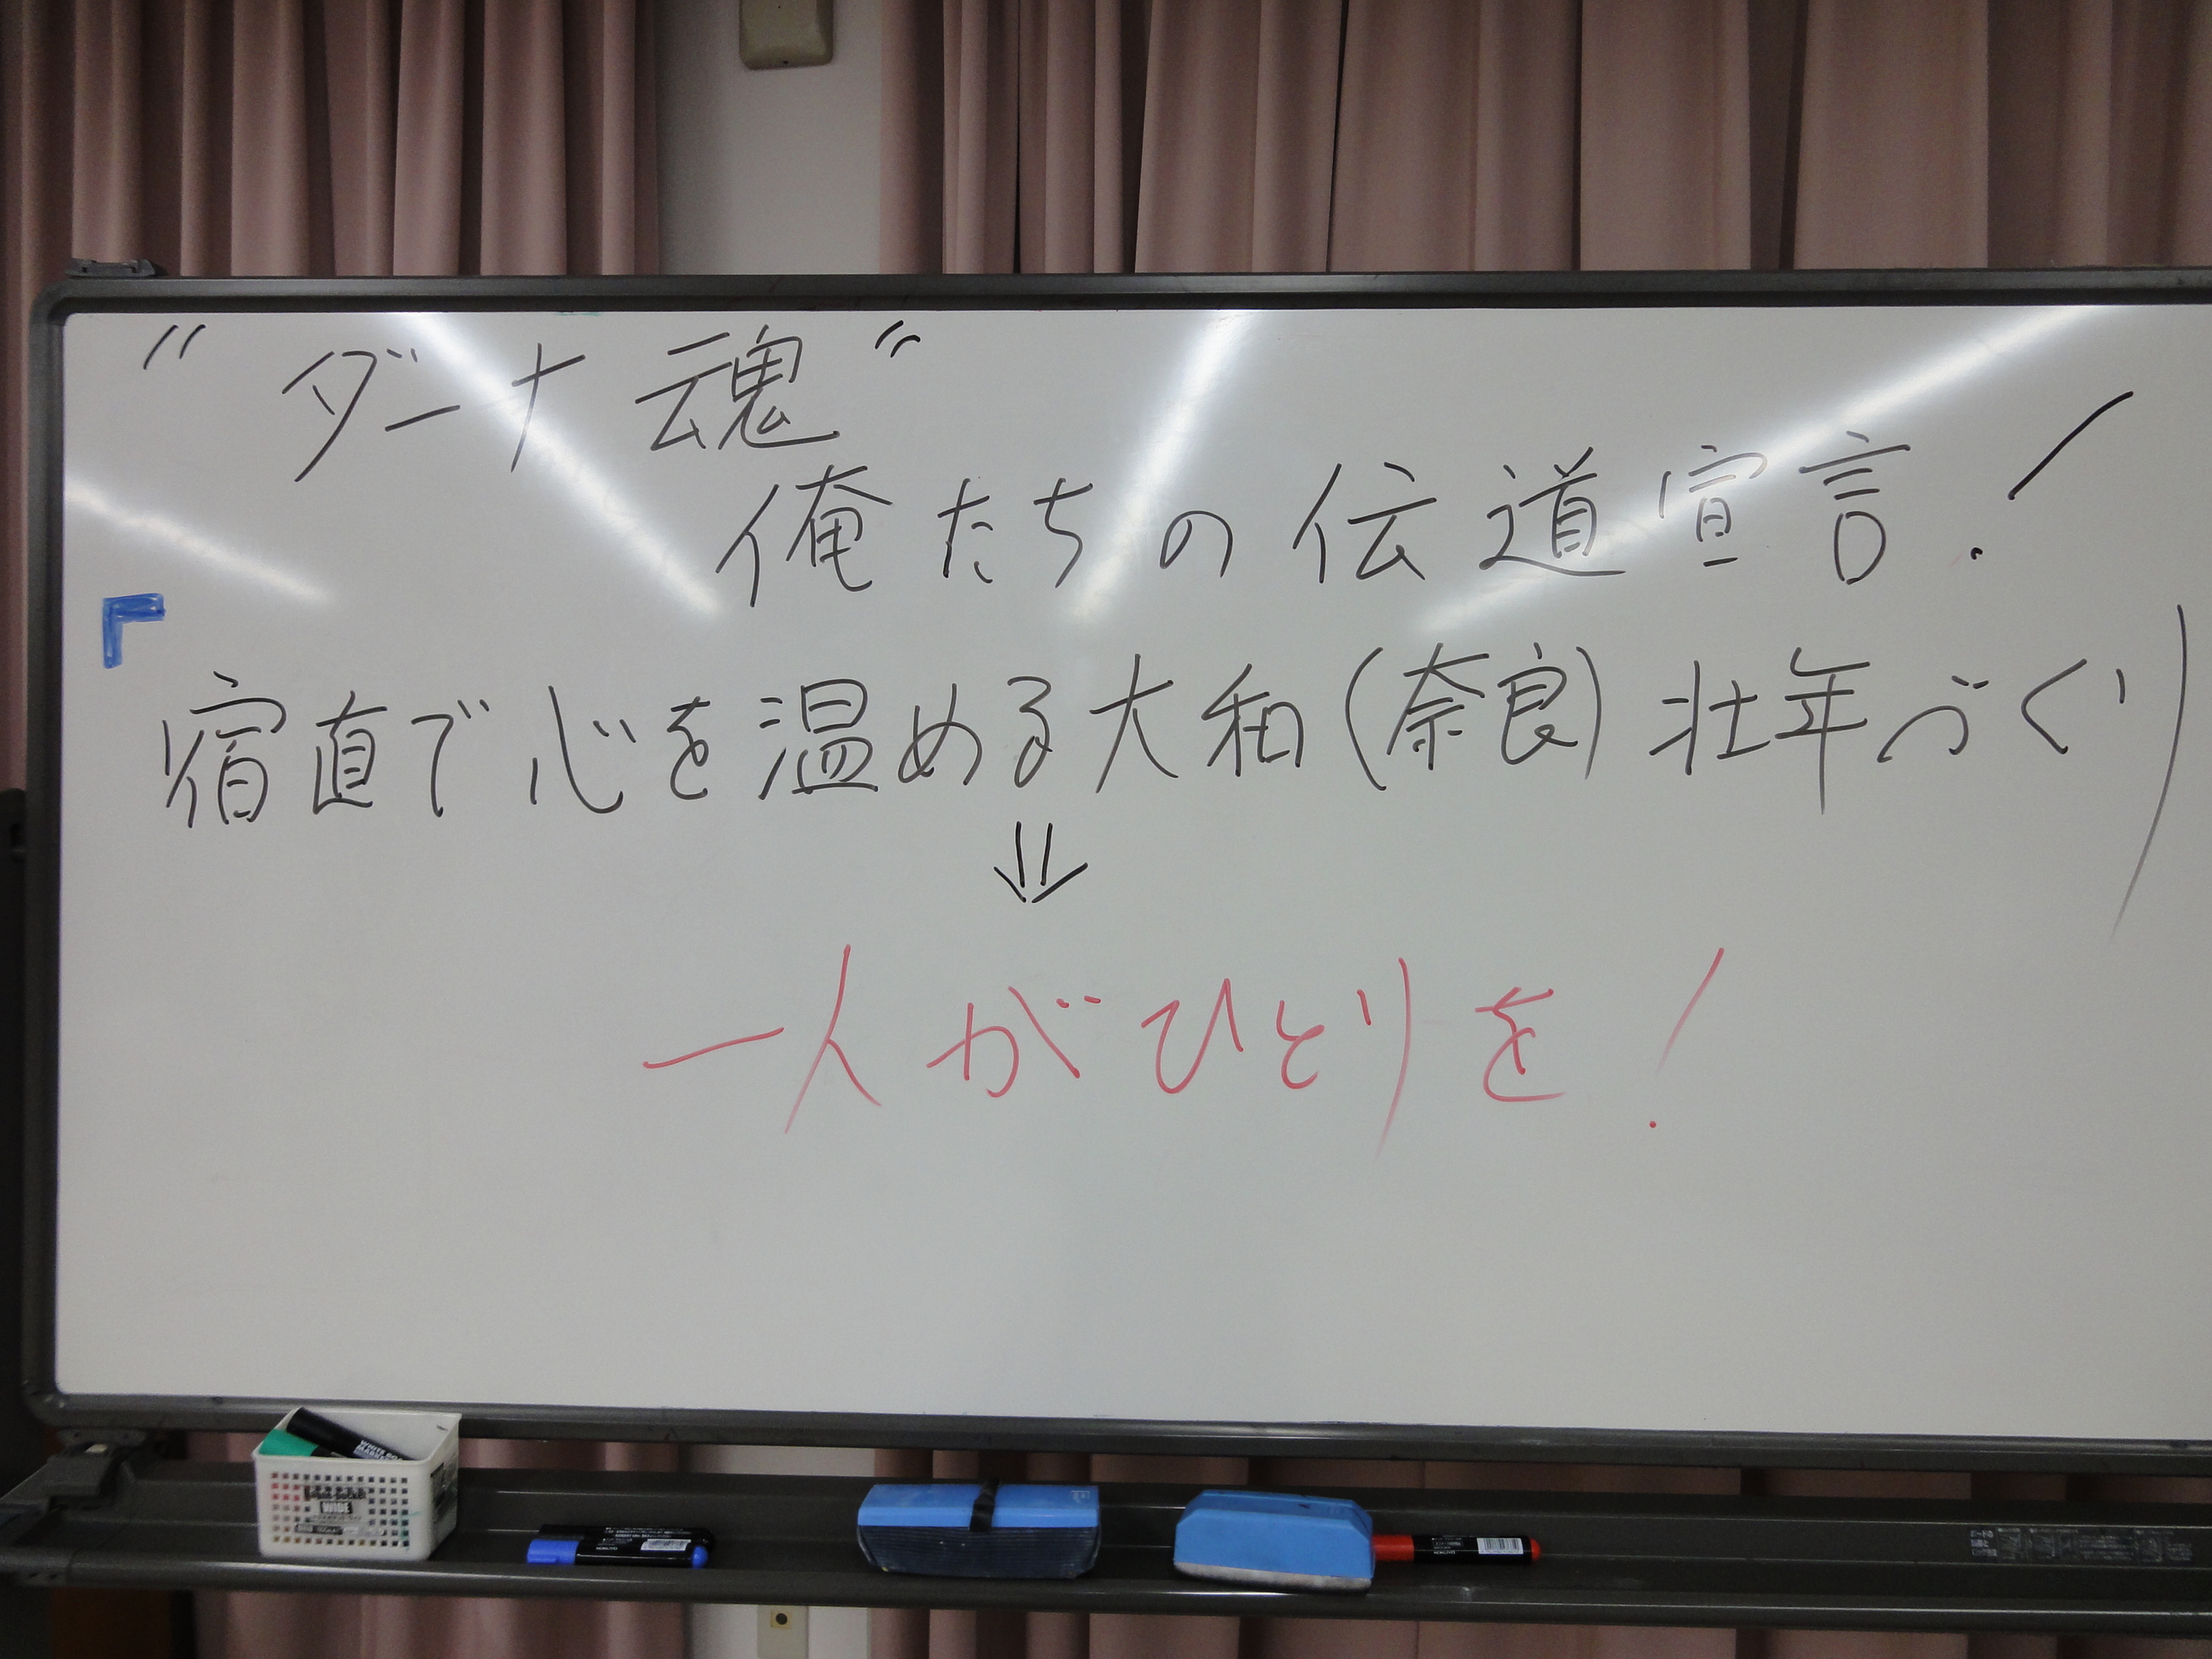 〃ダーナ魂〃
俺たちの伝道宣言!
「
宿直で心を温める大和(奈良)壮年づくり
⇓
一人がひとりを!
WIDE